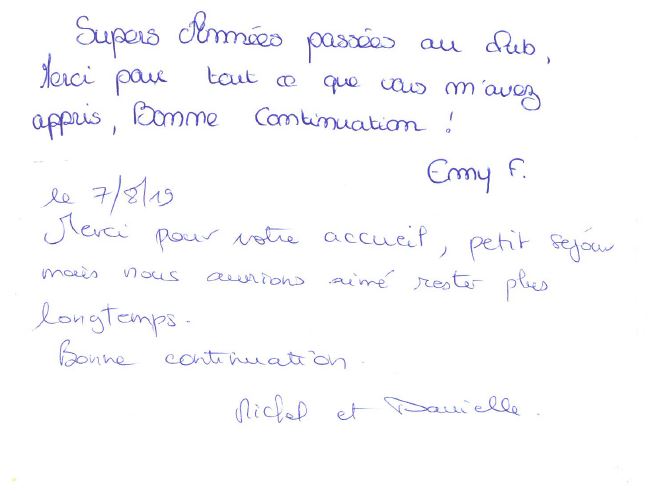 Supers Années passées au club,
Merci pour tout ce que vous m'avez
appris, Bonne Continuation !
Emy F.
le 7/8/19
Merci pour votre accueil, petit séjour
mais nous aurions aimé rester plus
longtemps.
Bonne continuation.
Michel et Danielle.